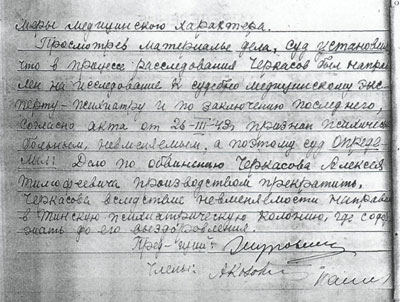 меры медицинского характера.
Просмотрев материалы дела, суд установил
что в процессе расследования Черкасов был направ
лен на исследование к судебно медицинскому экс
перту-психиатру и по заключению последнего,
согласно акта от 26-III-43г. признан психически
больным, невменяемым, а поэтому суд Опреде
лил: Дело по обвинению Черкасова Алексея
Тимофеевича производством прекратить,
Черкасова вследствие невменяемости направи
в Тинскую психиатрическую колонию, где содер
жать до его выздоровления.
Пред-
Члены: